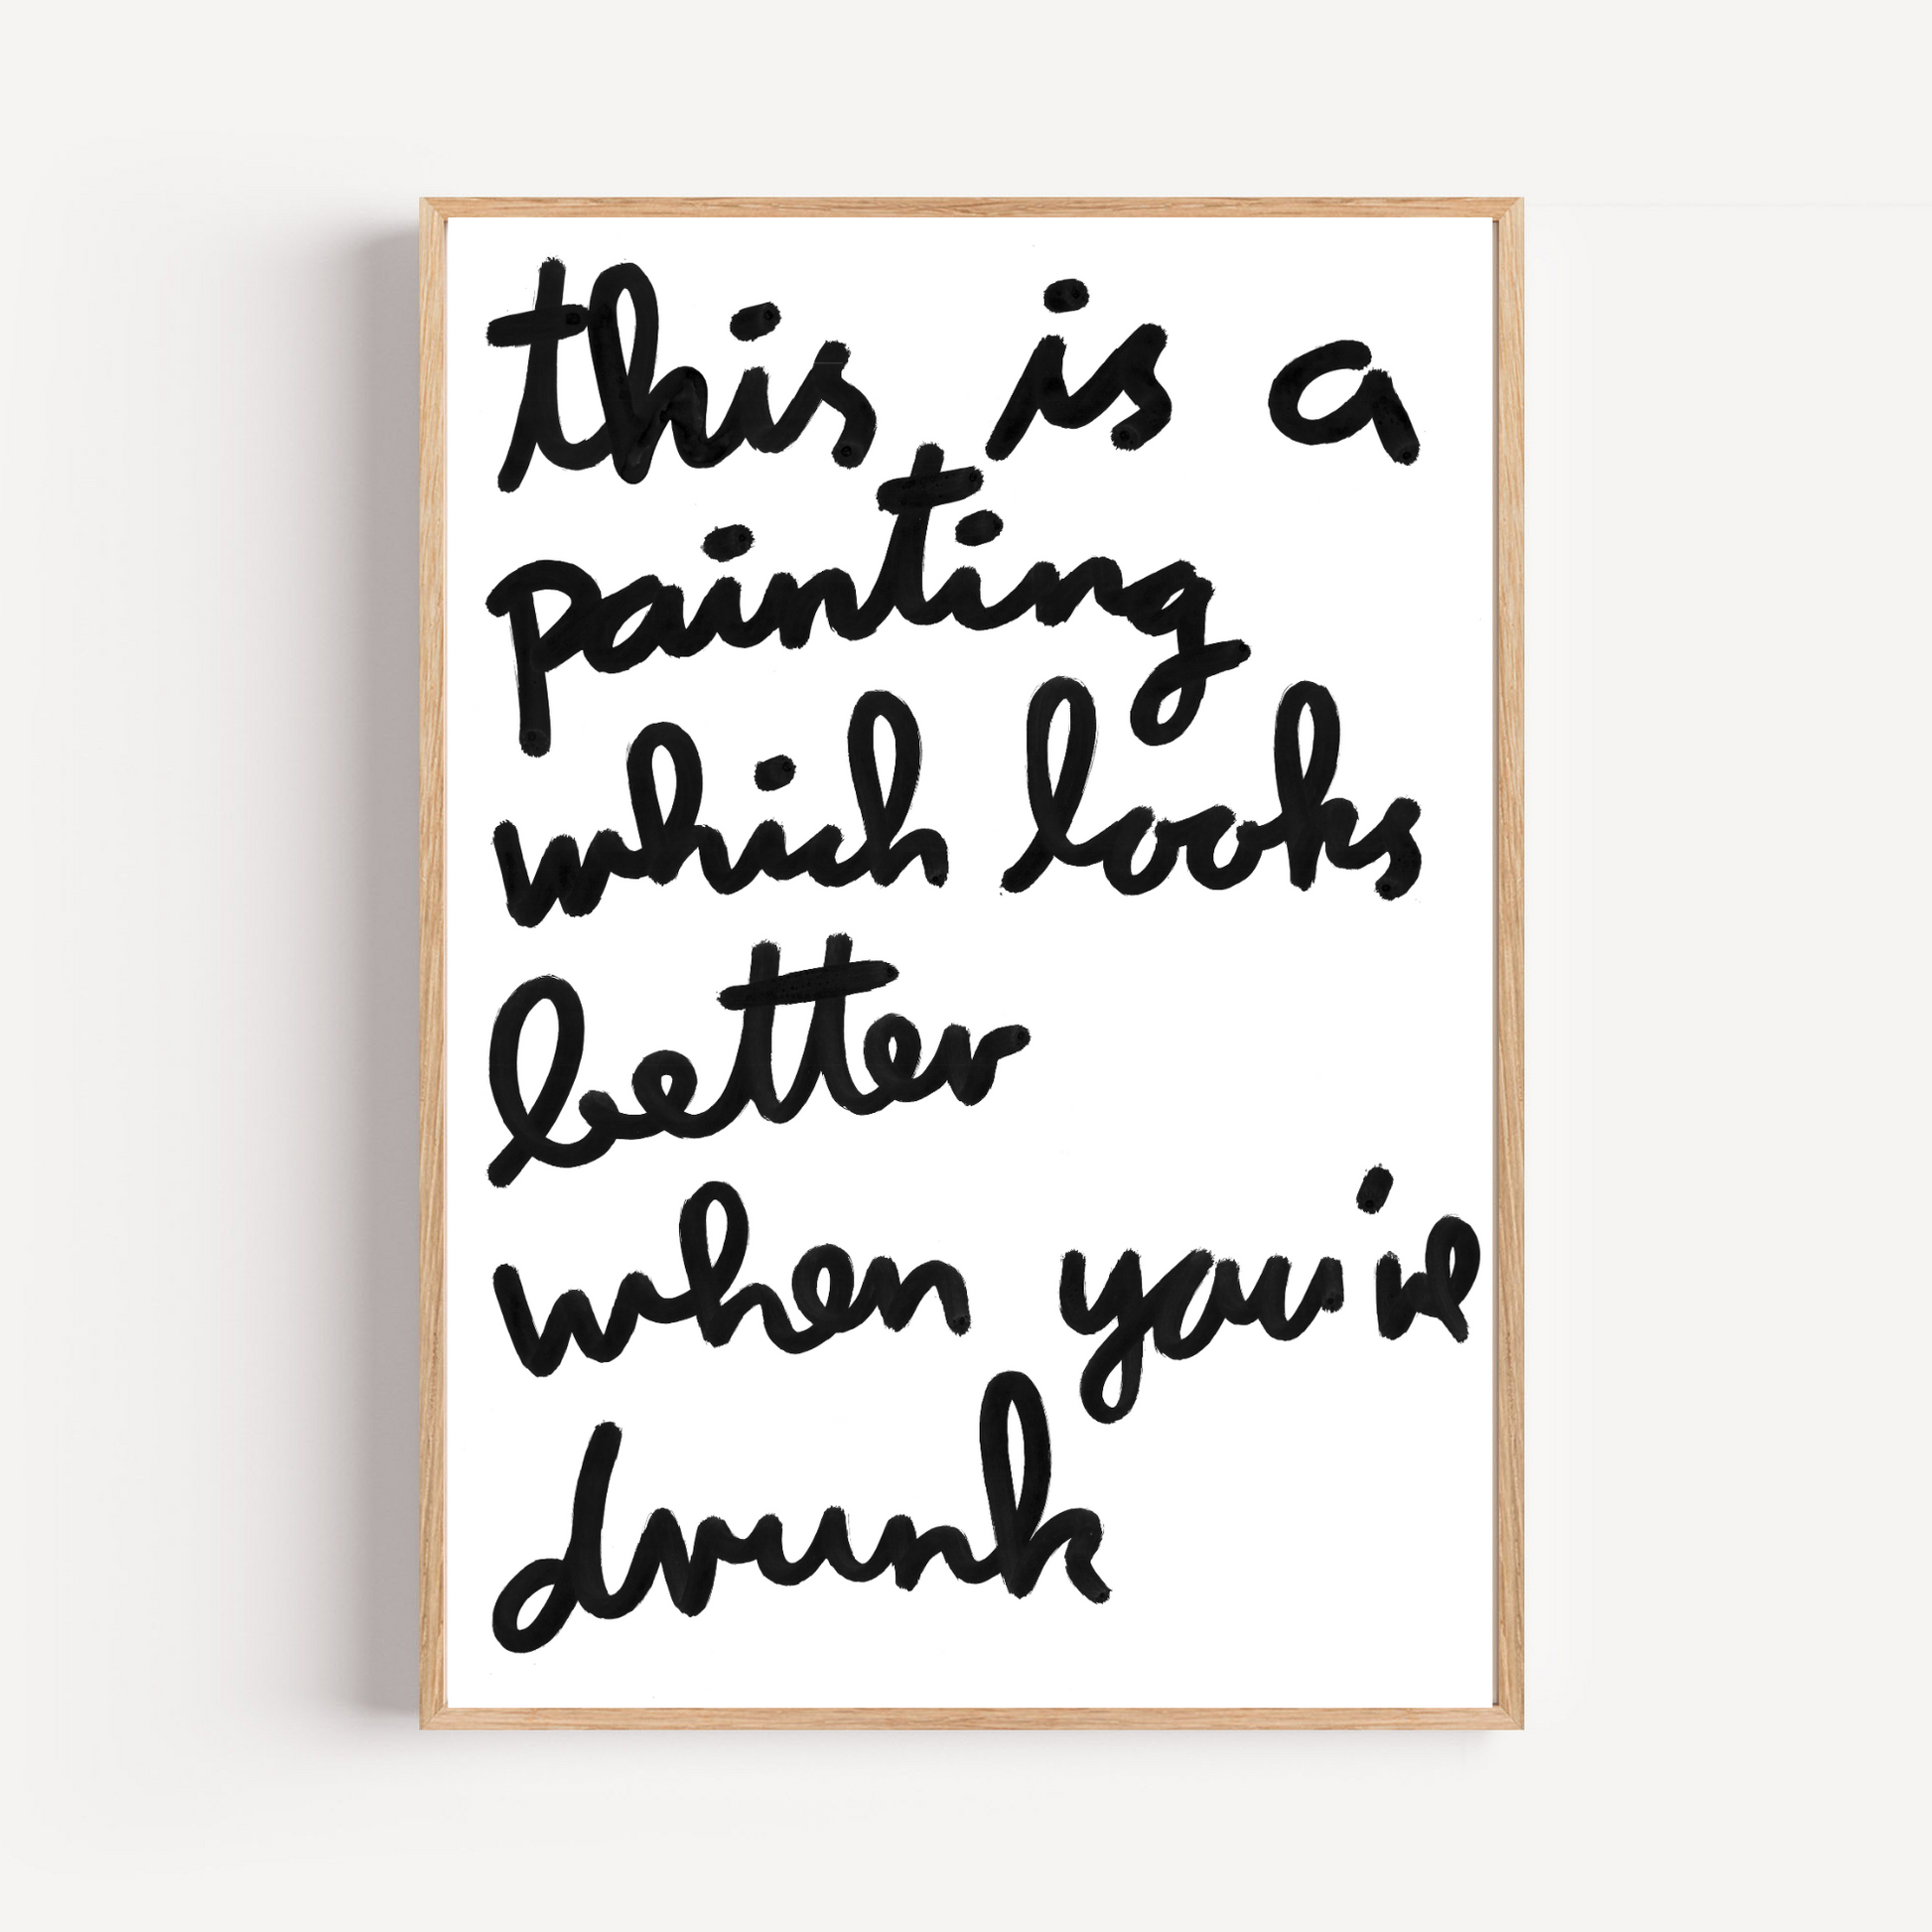 this is a
painting
which looks
better
when you're
drunk